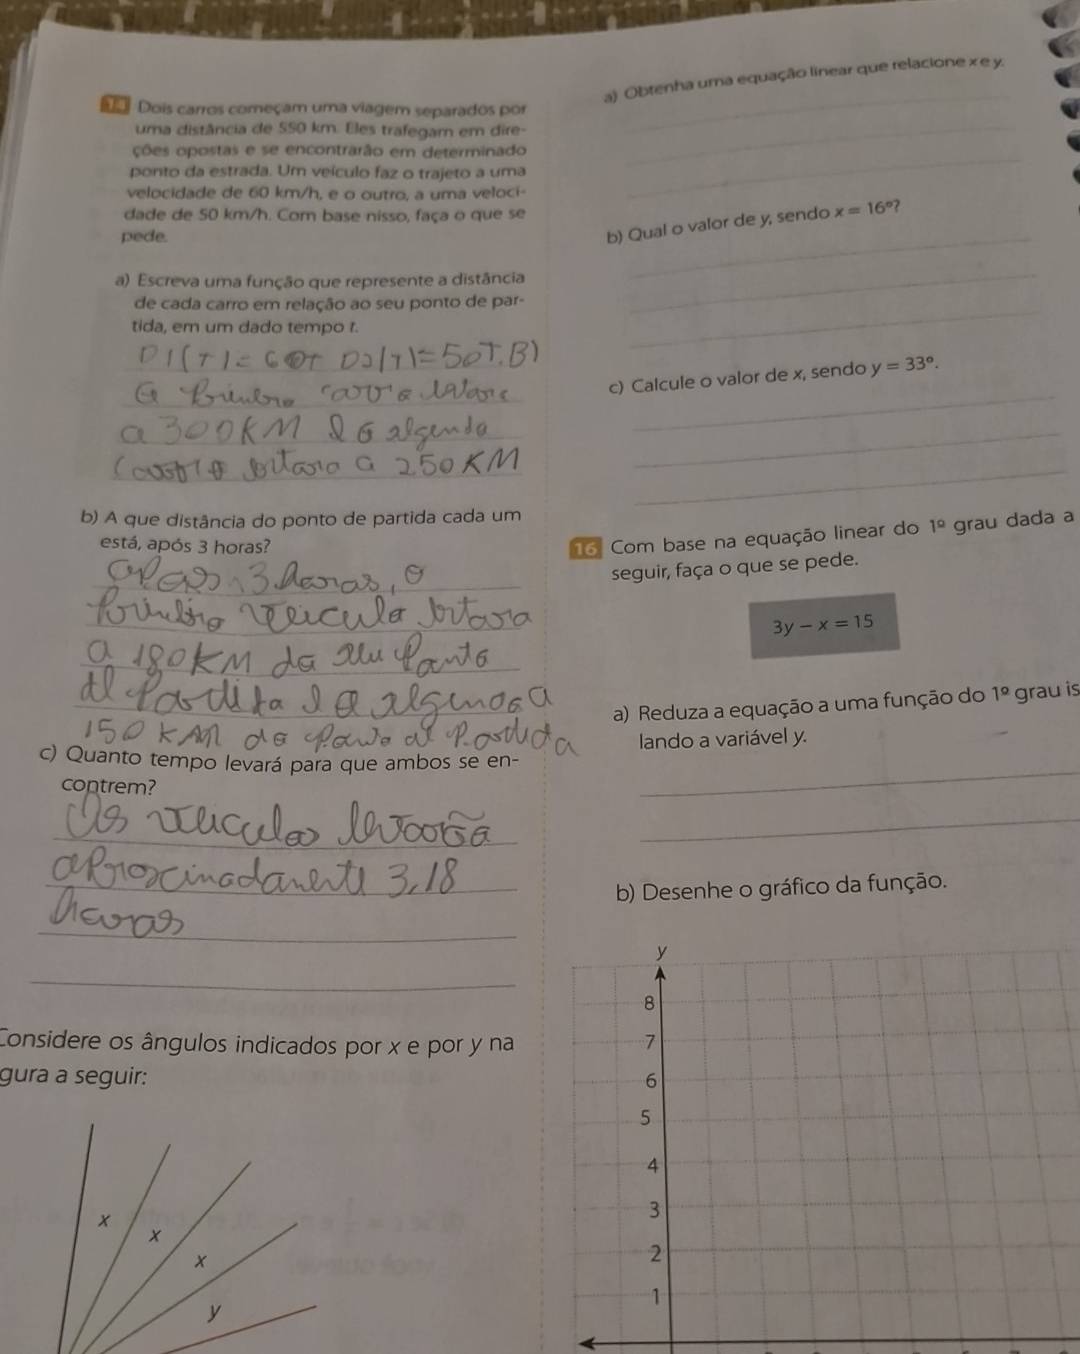 14 Dois carros começam uma viagem separados por
uma distância de 550 km. Eles trafegam em dire-
ções opostas e se encontrarão em determinado
ponto da estrada. Um veículo faz o trajeto a uma
velocidade de 60 km/h, e o outro, a uma veloci-
dade de 50 km/h. Com base nisso, faça o que se
pede.
a) Escreva uma função que represente a distância
de cada carro em relação ao seu ponto de par-
tida, em um dado tempo t.
D1(T)=60T D2(T)=50T.B)
a 300KM
a 250KM
b) A que distância do ponto de partida cada um
está, após 3 horas?
3 horas, o
veiculo
a 180KM da seu
150 KM
c) Quanto tempo levará para que ambos se en-
contrem?
Os veiculos
3,18
horas
Considere os ângulos indicados por x e por y na
gura a seguir:
x
x
x
y
a) Obtenha uma equação linear que relacione x e y.
b) Qual o valor de y, sendo x = 16º?
c) Calcule o valor de x, sendo y = 33º.
16 Com base na equação linear do 1º grau dada a
seguir, faça o que se pede.
3y − x = 15
a) Reduza a equação a uma função do 1º grau is
lando a variável y.
b) Desenhe o gráfico da função.
y
8
7
6
5
4
3
2
1